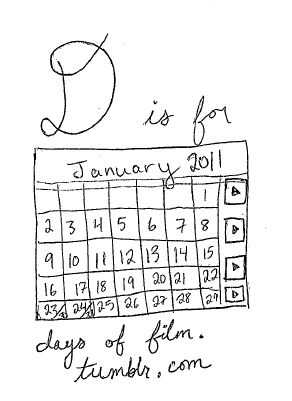 D
is for
January 2011
1
2 3 4 5 6 7 8
9 10 11 12 13 14 15
16 17 18 19 20 21 22
23/30 24/31 25 26 27 28 29
days of film.
tumblr.com